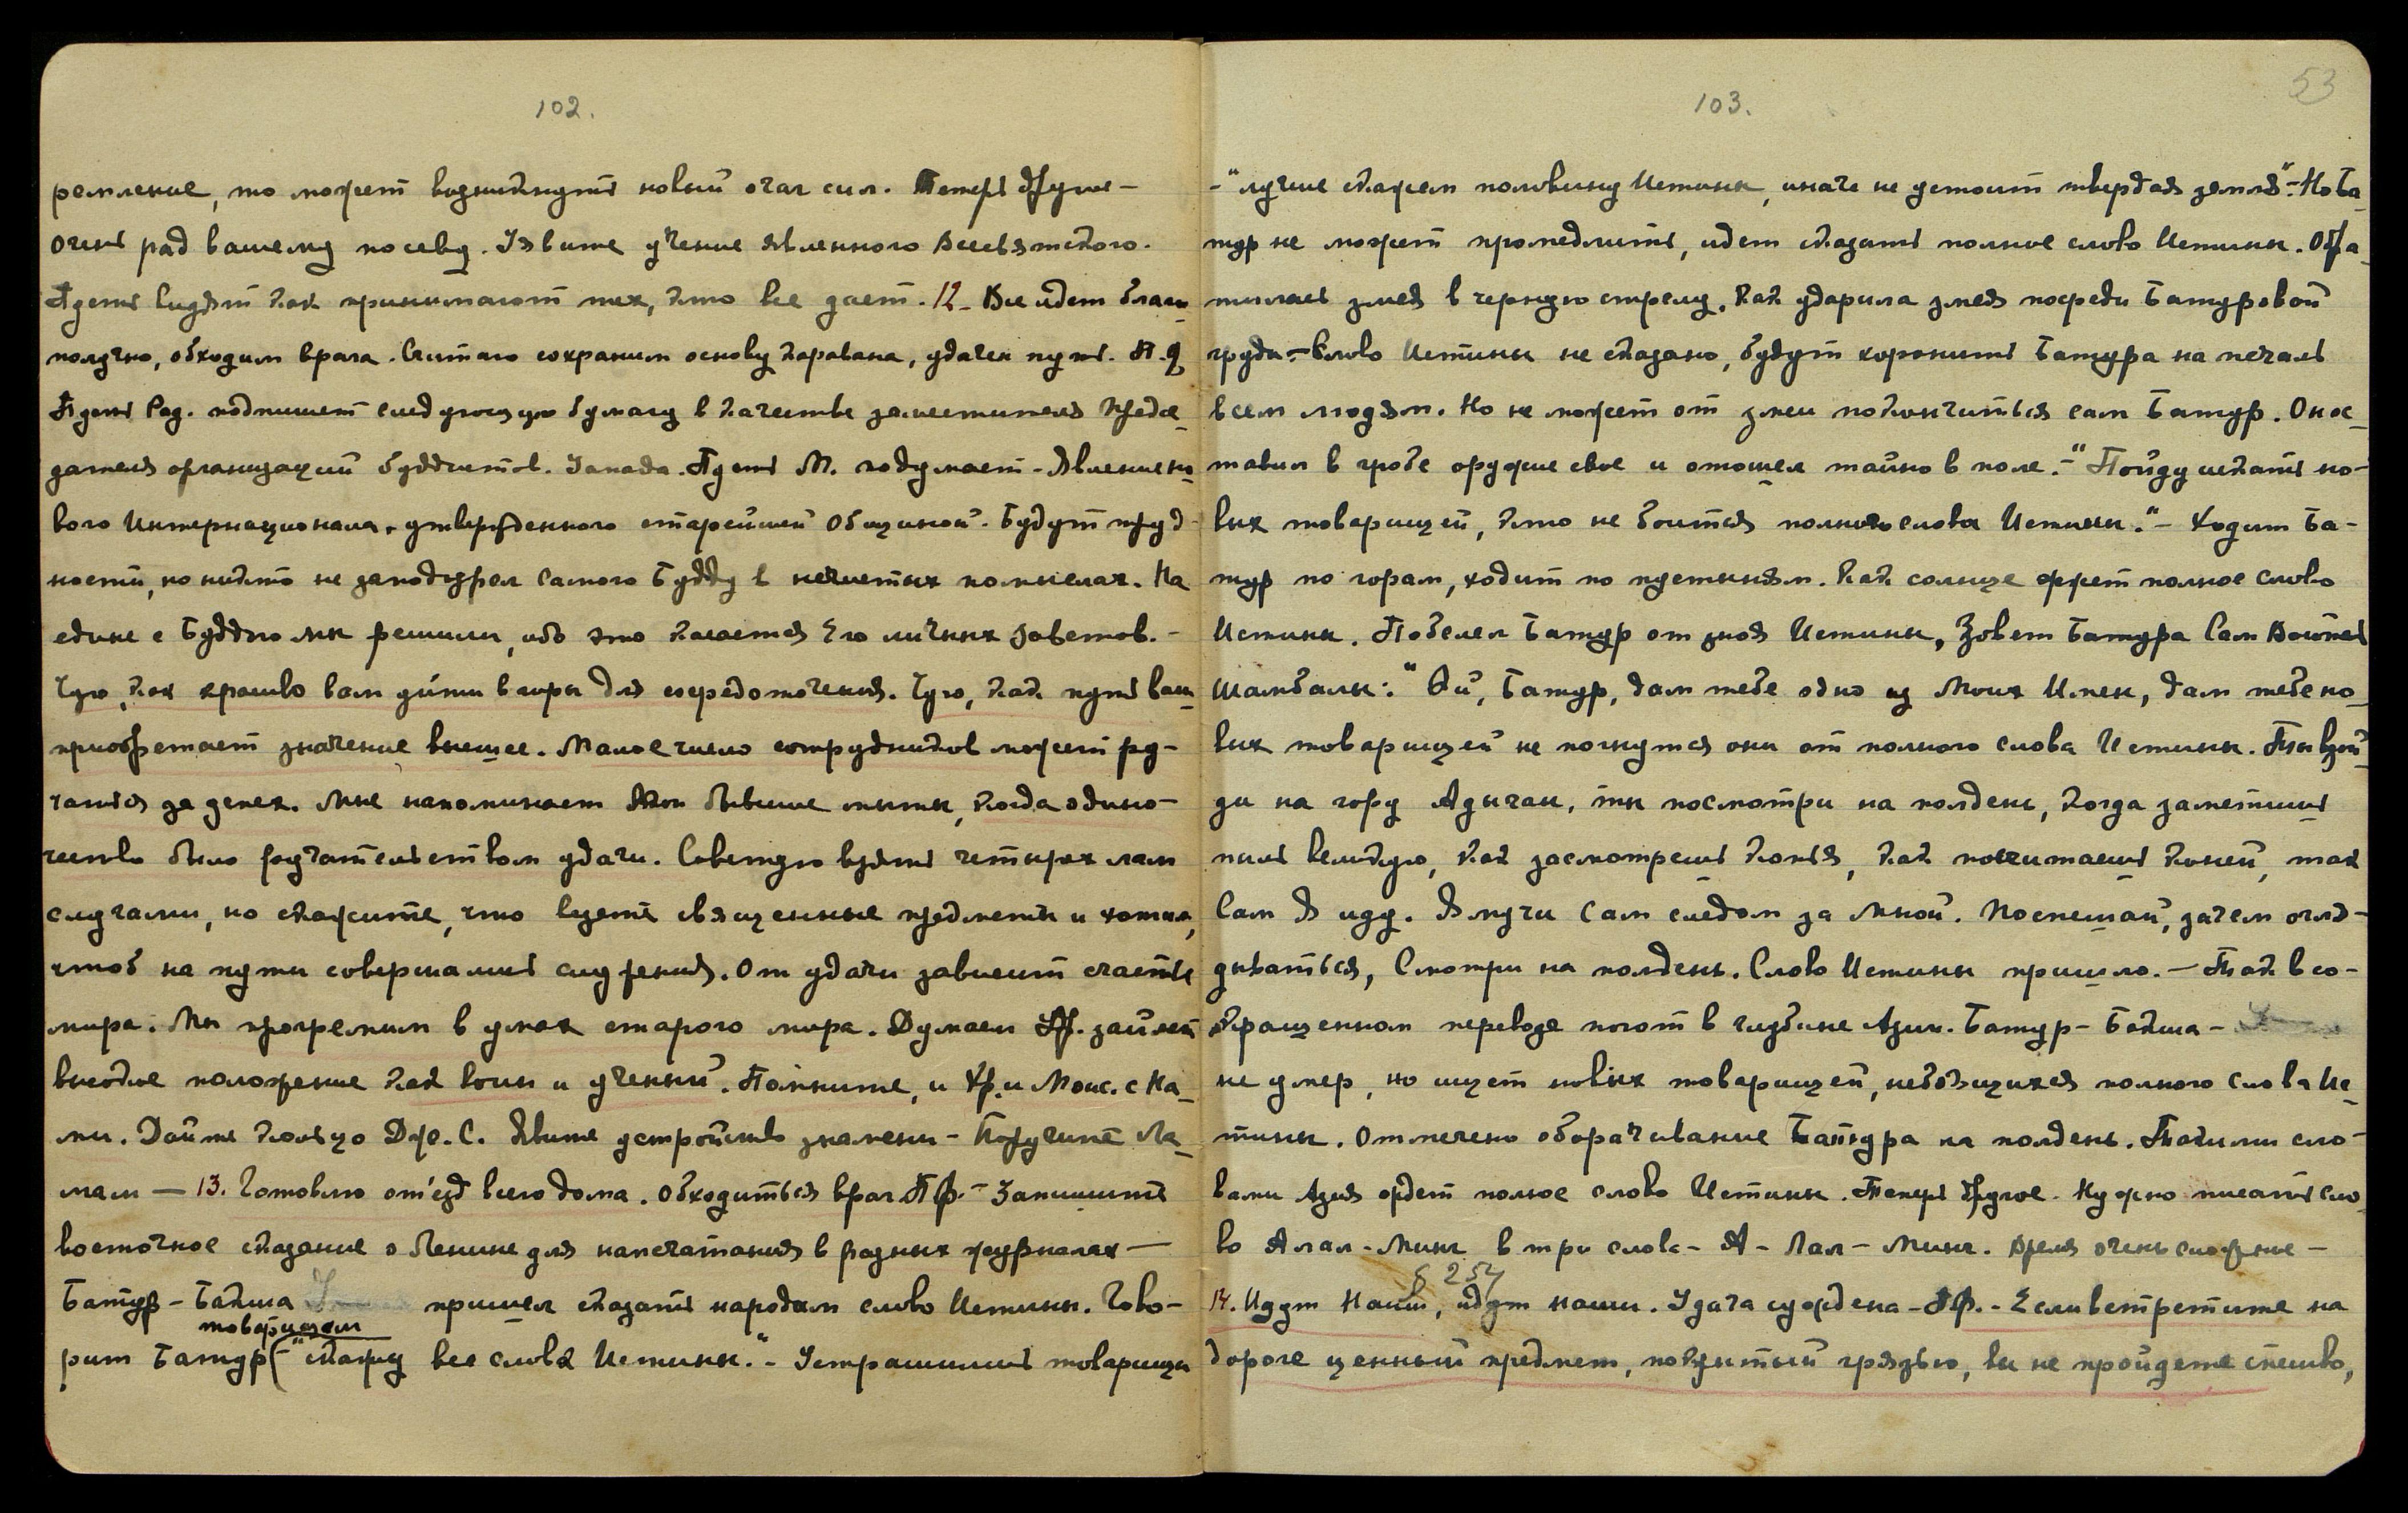 102.
ремление, то может возникнуть новый очаг сил. Теперь другое —
Очень рад вашему посеву. Явите учение явленного Всевятского.
Пусть видят как принимают тех, кто все дает. 12_ Все идет благо_
получно, обходим врага. Считаю сохраним основу каравана, удачен путь.
Пусть Род. подпишет следующую бумагу в качестве заместителя Предсе_
дателя организаций буддистов. Пусть М. подумает - Явление но_
вого Интернационала, утвержденного старейшей Общиной. Будут труд-
ности, но никто не заподозрел Самого Будду в нечистых помыслах. На
едине с Буддою мы решили, ибо это касается Его личных Заветов. -
Чую, как красиво вам уйти в горы для сосредоточения. Чую, как путь ваш_
приобретает значение высшее. Малое число сотрудников может ру-
чаться за успех. Мне напоминает Мои бывшие опыты, когда одино-
чество было ручательством удачи. Советую взять четырех лам
слугами, но скажите, что везете священные предметы и хотим,
чтоб на пути совершались служения. От удачи зависит счастье
мира. Мы прогремим в умах старого мира. Думаем Фр. займет
высокое положение как воин и ученый. Помните, и Хр. и Моис. с На_
ми. Дайте кольцо Дж. С. Явите устройство знамени - Поручите Ла_
мам — 13. Готовлю от'езд всего дома. Обходиться враг. ПФ. - Запишите
восточное сказание о Ленине для напечатания в разных журналах —
Батур - Бакша пришел сказать народам слово Истины. Гово-
товарищам
рит Батур (- "скажу все слова Истины." - Устрашились товарищи
103.
53
- "лучше скажем половину Истины, иначе не устоит твердая земля" - Но Ба_
тур не может промедлить, идет сказать полное слово Истины. Обра_
тилась змея в черную стрелу, как ударила змея посреди Батуровой
груди. - Слово Истины не сказано, будут хоронить Батура на печаль
всем людям. Но не может от змеи покончиться сам Батур. Он ос_
тавил в гробе оружие свое и отошел тайно в поле. - "Пойду искать но-
вых товарищей, кто не боится полного слова Истины." - Ходит Ба-
тур по горам, ходит по пустыням. Как солнце жжет полное слово
Истины. Побелел Батур от зноя Истины, Зовет Батура Сам Воитель
Шамбалы: "Ой, Батур, дам тебе одно из Моих Имен, дам тебе но_
вых товарищей не погнутся они от полного слова Истины. Ты взой_
ди на гору Адыган, ты посмотри на полдень, когда заметишь
пыль великую, как засмотрешь копья, как посчитаешь коней, так
Сам Я иду. Влучи Сам следом за Мной. Поспешай, зачем огля-
дываться, Смотри на полдень. Слово Истины пришло. — Так в со-
кращенном переводе поют в глубине Азии. Батур - Бакша -
не умер, но ищет новых товарищей, небоящихся полного слова Ис_
тины. Отмечено оборачивание Батура на полдень. Такими сло-
вами Азия ждет полное слово Истины. Теперь другое. Нужно писать сло_
во Алал-Минг в три слова - А - Лал - Минг. Время очень сложное —
§ 254
14. Идут Наши, идут наши. Удача суждена - ПФ. - Если встретите на
дороге ценный предмет, покрытый грязью, вы не пройдете спешно,